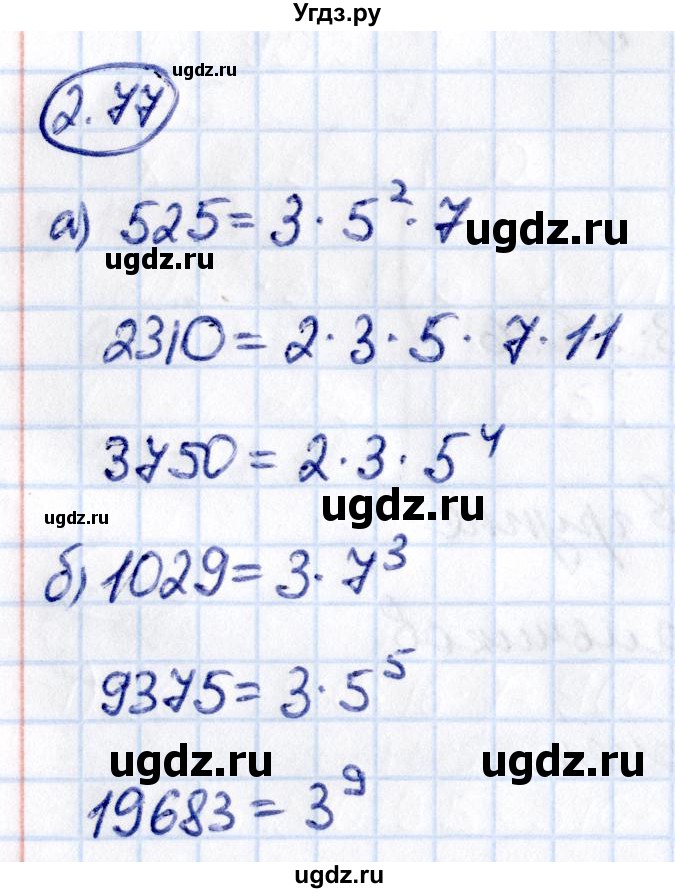 Угдз.ру
2.77
ugdz.ru
а) 525 = 3 · 5² · 7
ugdz.ru
ugdz.ru
2310 = 2 · 3 · 5 · 7 · 11
3750 = 2 · 3 · 5⁴
ugdz.ru
ugdz.ru
б) 1029 = 3 · 7³
9375 = 3 · 5⁵
ugdz.ru
ugdz.ru
19683 = 3⁹
ugdz.ru